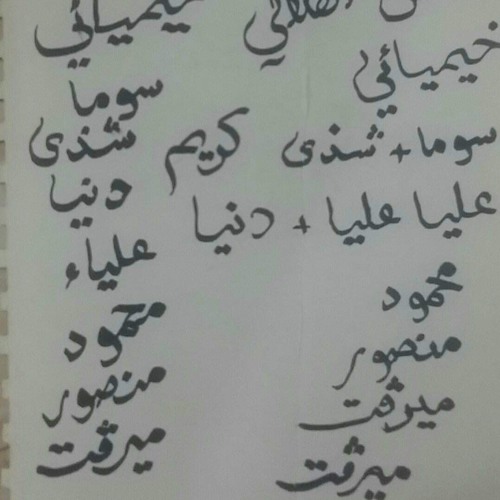 خيميائي
سوما + شذى كريم
عليا عليا + دنيا
محمود
منصور
ميرڤت
ميرڤت
سوما
شذى
دنيا
علياء
محمود
منصور
ميرڤت